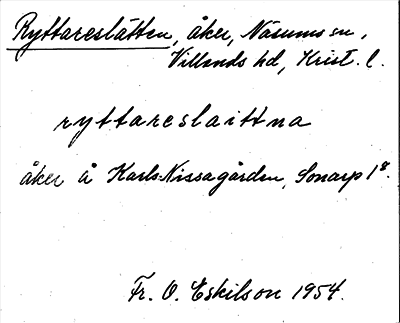 Ryttareslätten, åker, Näsums sn,
Villands hd, Krist. l.
ryttareslaittna
åker å Karls-Nissagården, Sonarp 1⁸.
Fr. O. Eskilson 1954.